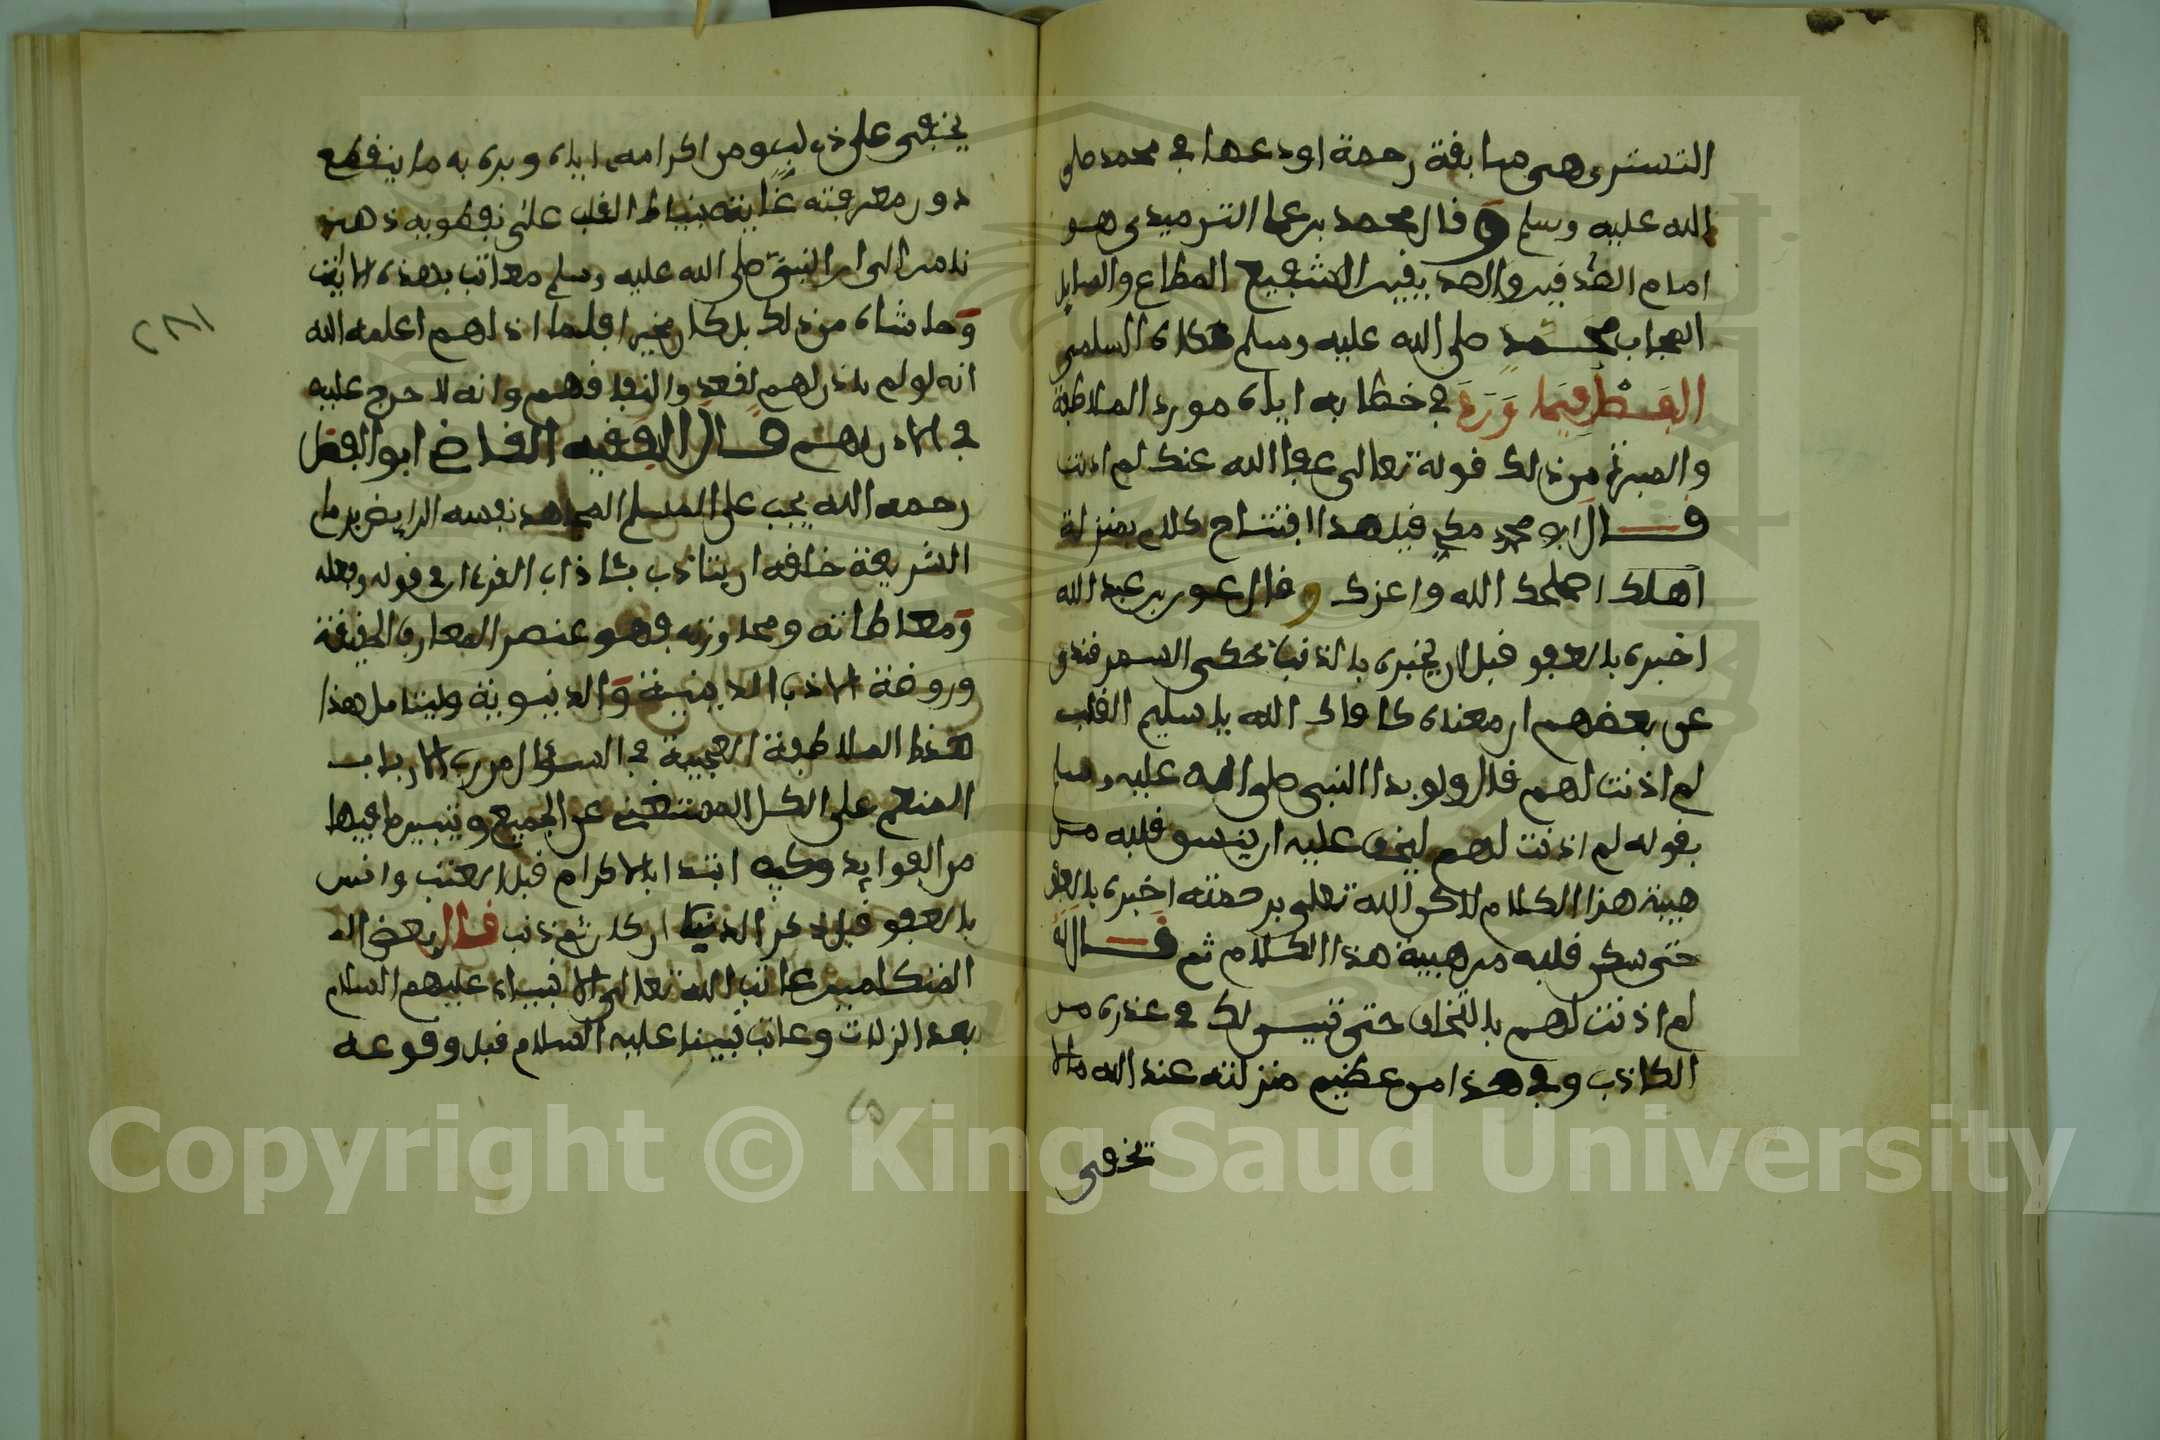 التستري هي سابقة رحمة اودعها في محمد صلى
الله عليه وسلم وقال محمد بن علي الترميدي هو
امام الصدقين والصديقين الشفيع المطاع والسايل
المجاب محمد صلى الله عليه وسلم حكاه السلمي
الفصل فيما ورد في خطابه اياه مورد الملاطفة
والمبرة من ذلك قوله تعالى عفا الله عنك لم اذنت
قال ابو محمد مكي قيل هذا افتتاح كلام بمنزلة
اصلحك الله واعزك وقال عون بن عبد الله
اخبره بالعفو قبل ان يخبره بالذنب حكى السمرقندي
عن بعضهم ان معناه عافاك الله يا سليم القلب
لم اذنت لهم قال ولو بدا النبي صلى الله عليه وسلم
بقوله لم اذنت لهم ليخف عليه ان ينشق قلبه من
هيبة هذا الكلام لاكن الله تعلى برحمته اخبره بالعفو
حتى سكن قلبه من هيبة هذا الكلام ثم قال له
لم اذنت لهم بالتخلف حتى تبين لك في عذره من
الكاذب وفي هذا من عظيم منزلته عند الله ما لا
تخفى
يخفى على ذي لب ومن اكرامه اياه وبره به ما ينقطع
دون معرفته غايته نياط القلب قال نفطويه ذهب
ناس الى ان النبي صلى الله عليه وسلم معاتب بهذه الاية
وحاشاه من ذلك بل كان مخيرا فلما اذن لهم اعلمه الله
انه لو لم ياذن لهم لقعدوا لنفاقهم وانه لا حرج عليه
في الاذن لهم قال الفقيه القاضي ابو الفضل
رحمه الله يجب على المسلم المجاهد نفسه الرايض بزمام
الشريعة خلقه ان يتادب باداب القرءان في قوله وفعله
ومعاطاته ومحاوزته فهو عنصر المعارف الحقيقة
وروضة الاداب الدينية والدنيوية وليتامل هذا
هذه الملاطفة العجيبة في السؤال من رب الارباب
المنعم على الكل المستغني عن الجميع ويتبين ما فيها
من الفوايد وكيف ابتدا بالاكرام قبل العتب وانس
بالعفو قبل ذكر الذنب ان كان ثم ذنب قال بعض اله
المتكلمين عاتب الله تعالى الانبياء عليهم السلام
بعد الزلات وعاتب نبينا عليه السلام قبل وقوعه
٢٨١
Copyright © King Saud University